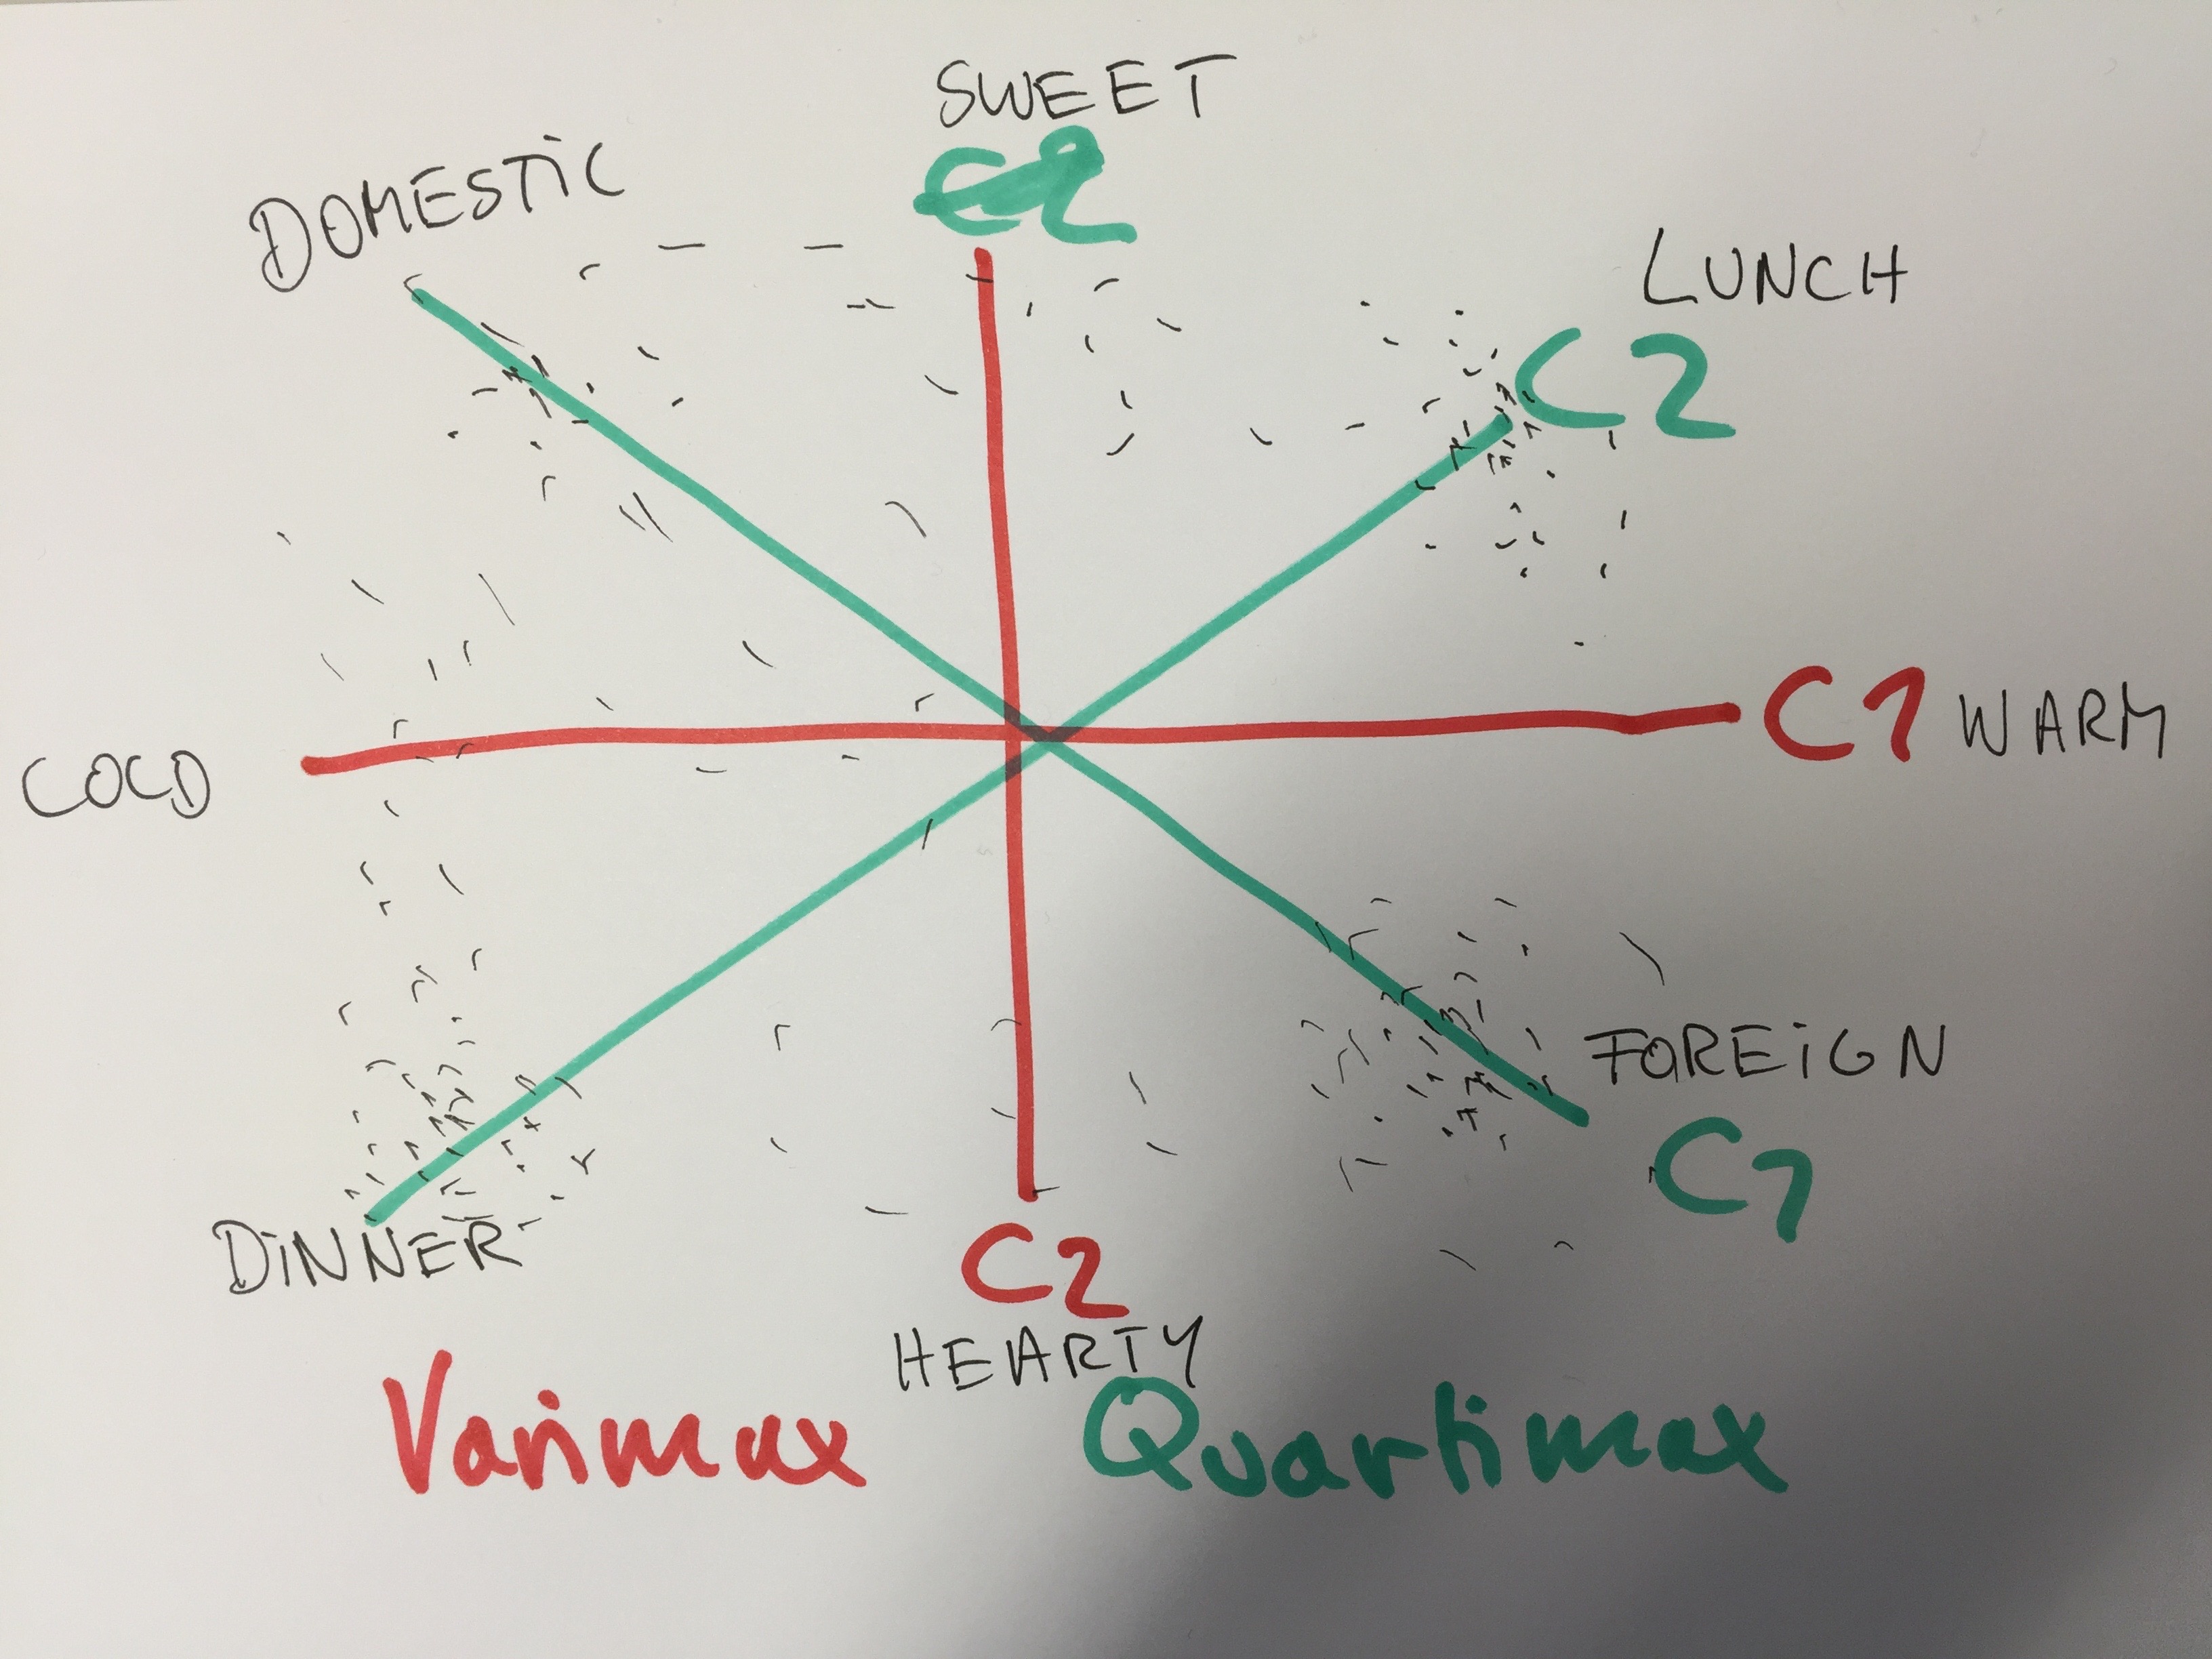 SWEET
C2
DOMESTIC
LUNCH
C2
C1 WARM
COLD
FOREIGN
C1
DINNER
C2
HEARTY
Varimax
Quartimax